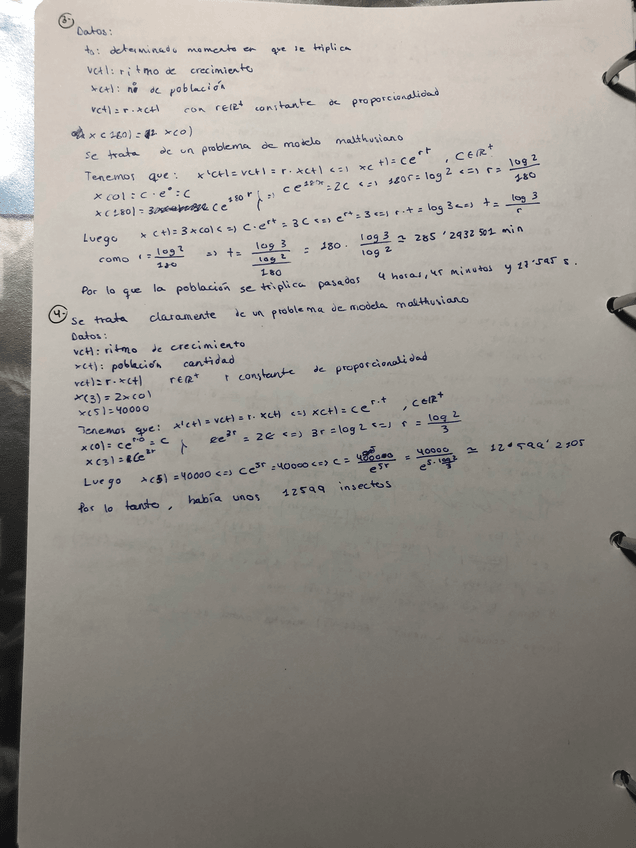 3.-
Datos:
t₀: determinado momento en que se triplica
v(t): ritmo de crecimiento
x(t): nº de población
v(t) = r · x(t) con r∈ℝ⁺ constante de proporcionalidad
x(180) = 2 x(0)
Se trata de un problema de modelo malthusiano
Tenemos que: x'(t) = v(t) = r · x(t) <=> x(t) = Ce^{rt}, C∈ℝ⁺
x(0) = C · e⁰ = C
x(180) = Ce^{180r} } => Ce^{180r} = 2C <=> 180r = log 2 <=> r = log 2 / 180
Luego x(t) = 3x(0) <=> C · e^{rt} = 3C <=> e^{rt} = 3 <=> r · t = log 3 <=> t = log 3 / r
como r = log 2 / 180 => t = log 3 / (log 2 / 180) = 180 · log 3 / log 2 ≃ 285'2932501 min
Por lo que la población se triplica pasados 4 horas, 45 minutos y 17'595 s.
4.- Se trata claramente de un problema de modelo malthusiano
Datos:
v(t): ritmo de crecimiento
x(t): población cantidad
v(t) = r · x(t) r∈ℝ⁺ r constante de proporcionalidad
x(3) = 2x(0)
x(5) = 40000
Tenemos que: x'(t) = v(t) = r · x(t) <=> x(t) = Ce^{r·t}, C∈ℝ⁺
x(0) = Ce^{r·0} = C
x(3) = Ce^{3r} } Ce^{3r} = 2C <=> 3r = log 2 <=> r = log 2 / 3
Luego x(5) = 40000 <=> Ce^{5r} = 40000 <=> C = 40000 / e^{5r} = 40000 / e^{5 · log 2 / 3} ≃ 12599'2105
Por lo tanto, había unos 12599 insectos